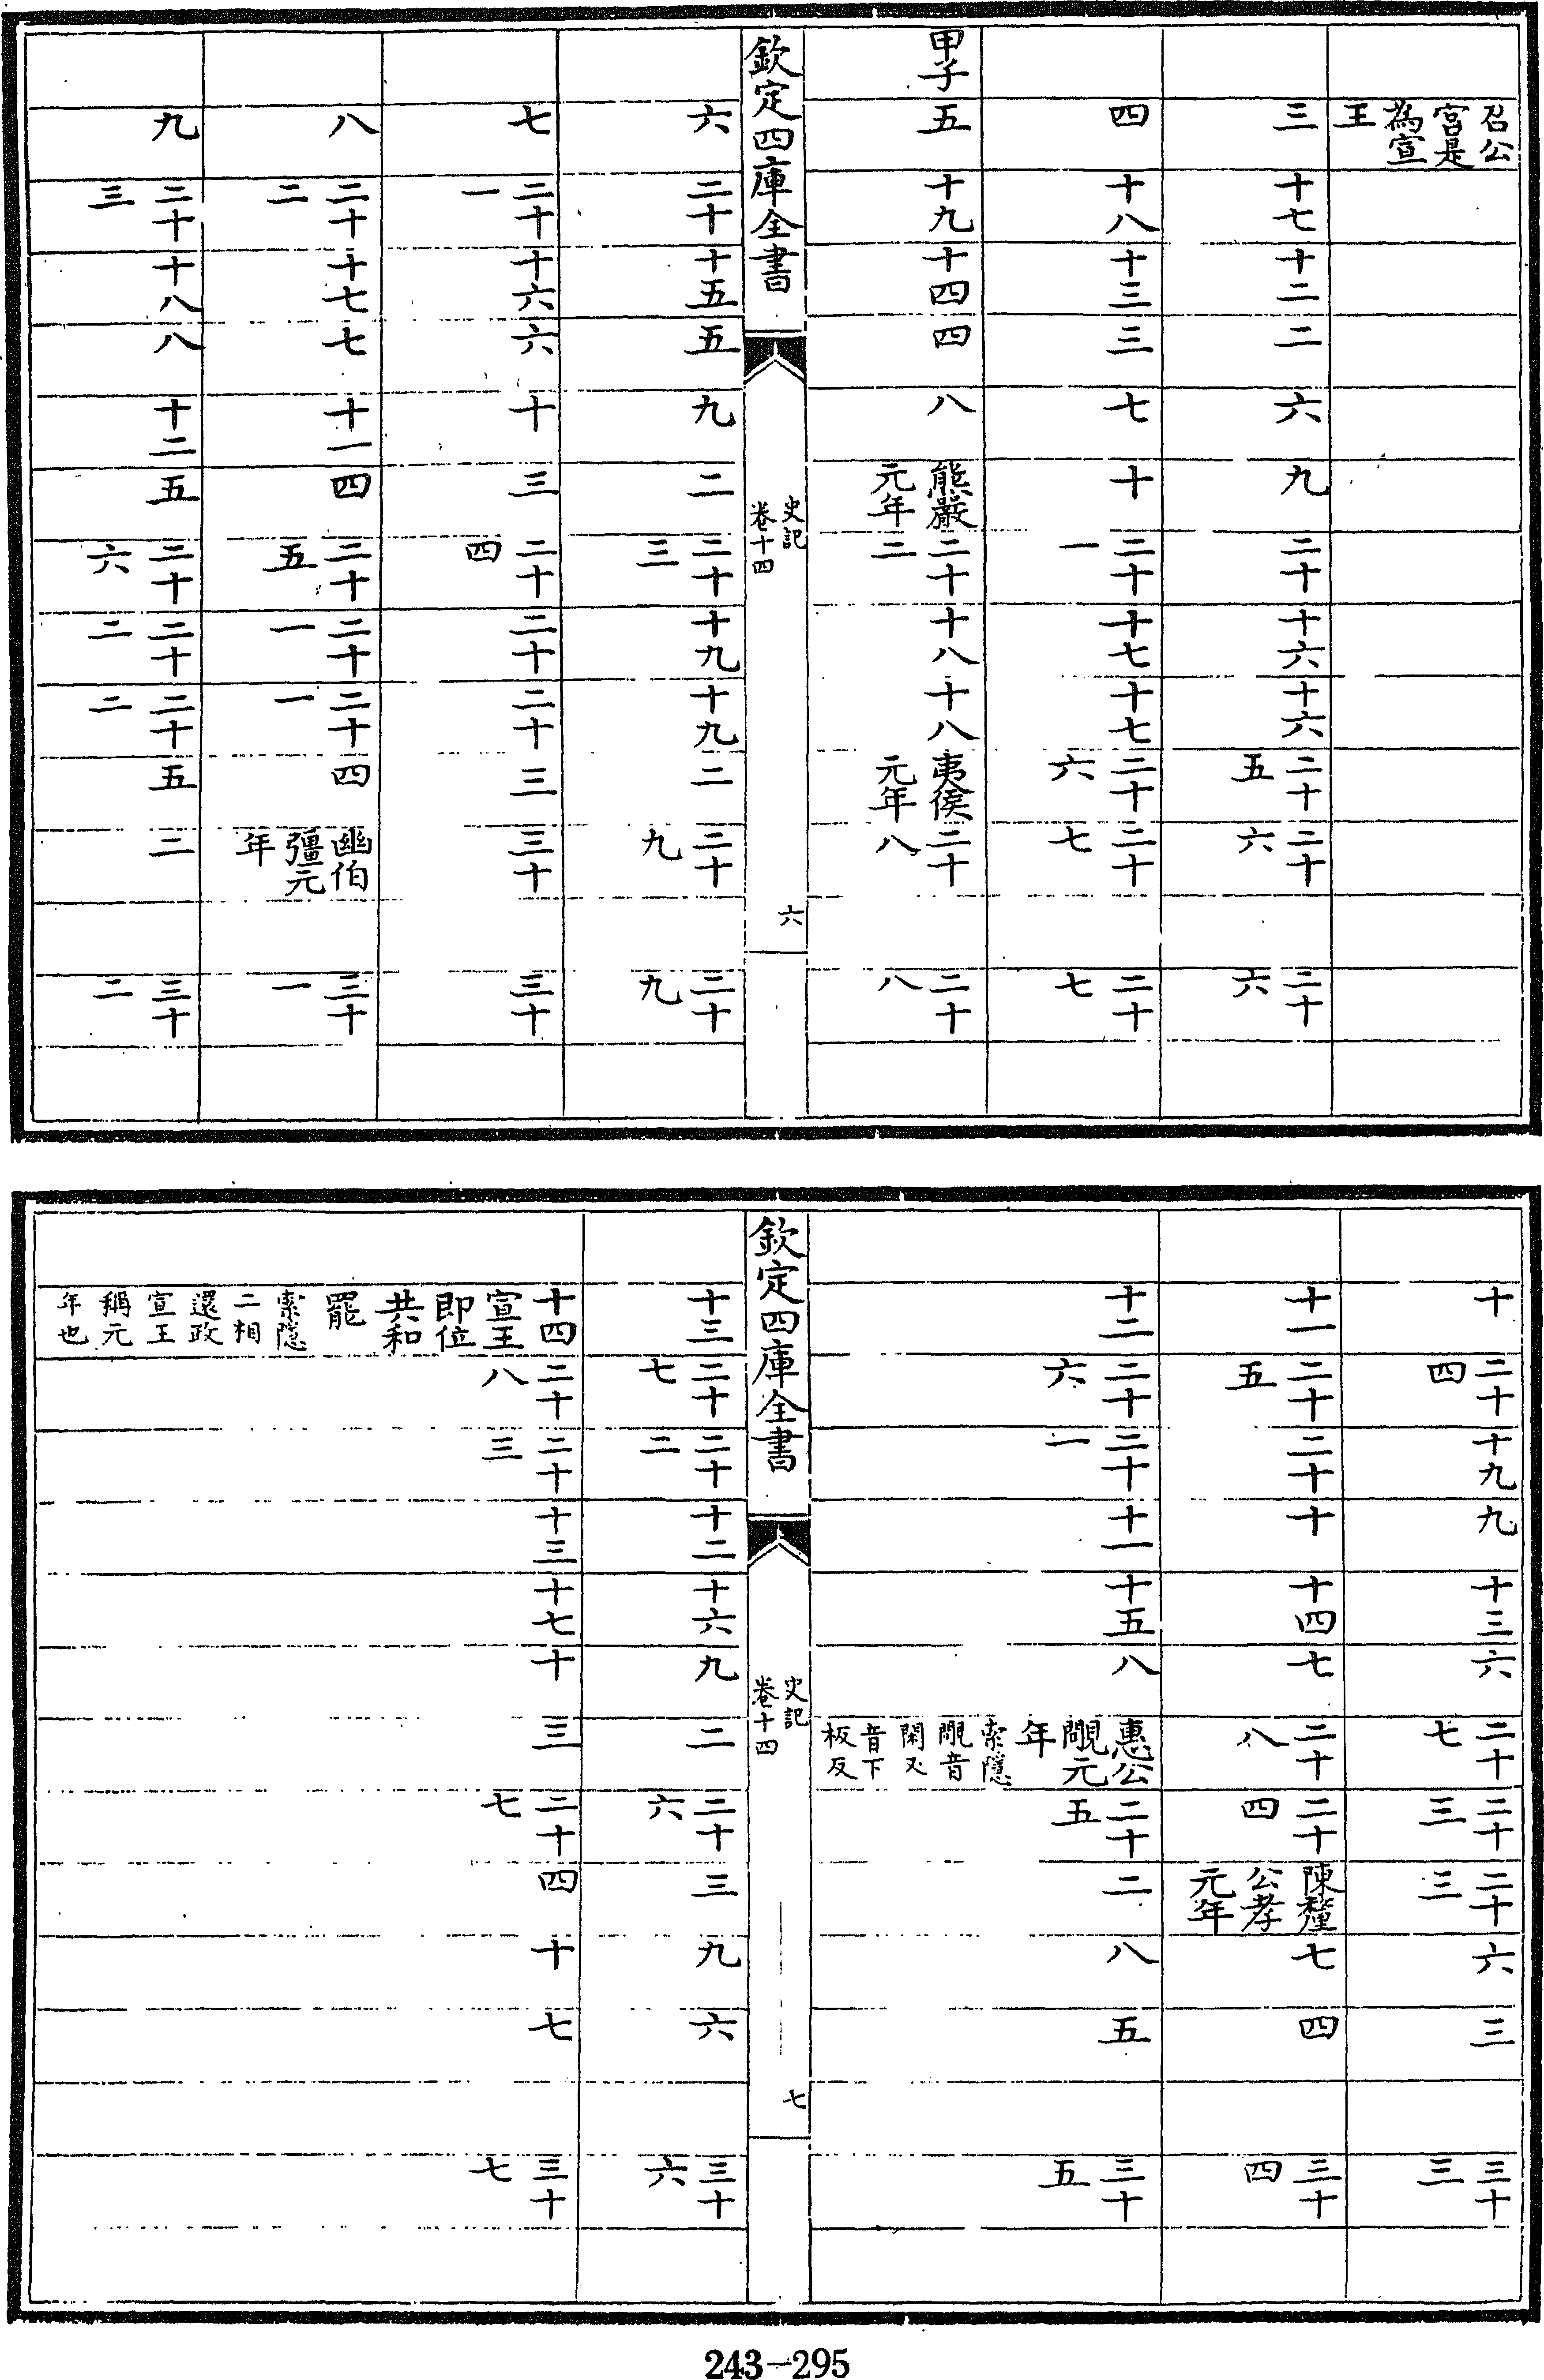 召公
宮是
為宣
王
三 十七 十二 二 六 九 二十 十六 十六 二十五 二十六 二十六
四 十八 十三 三 七 十 二十一 十七 十七 二十六 二十七 二十七
甲子 五 十九 十四 四 八 熊嚴元年 二十二 十八 十八 夷侯元年 二十八 二十八
欽定四庫全書
史記
卷十四
六
六 二十 十五 五 九 二 二十三 十九 十九 二 二十九 二十九
七 二十一 十六 六 十 三 二十四 二十 二十 三 三十 三十
八 二十二 十七 七 十一 四 二十五 二十一 二十一 四 幽伯彊元年 三十一
九 二十三 十八 八 十二 五 二十六 二十二 二十二 五 二 三十二
十 二十四 十九 九 十三 六 二十七 二十三 二十三 六 三 三十三
十一 二十五 二十 十 十四 七 二十八 二十四 陳釐公孝元年 七 四 三十四
十二 二十六 二十一 十一 十五 八 惠公覵元年索隱覵音閑又音下板反 二十五 二 八 五 三十五
欽定四庫全書
史記
卷十四
七
十三 二十七 二十二 十二 十六 九 二 二十六 三 九 六 三十六
十四宣王即位共和罷索隱二相還政宣王稱元年也 二十八 二十三 十三 十七 十 三 二十七 四 十 七 三十七
243-295